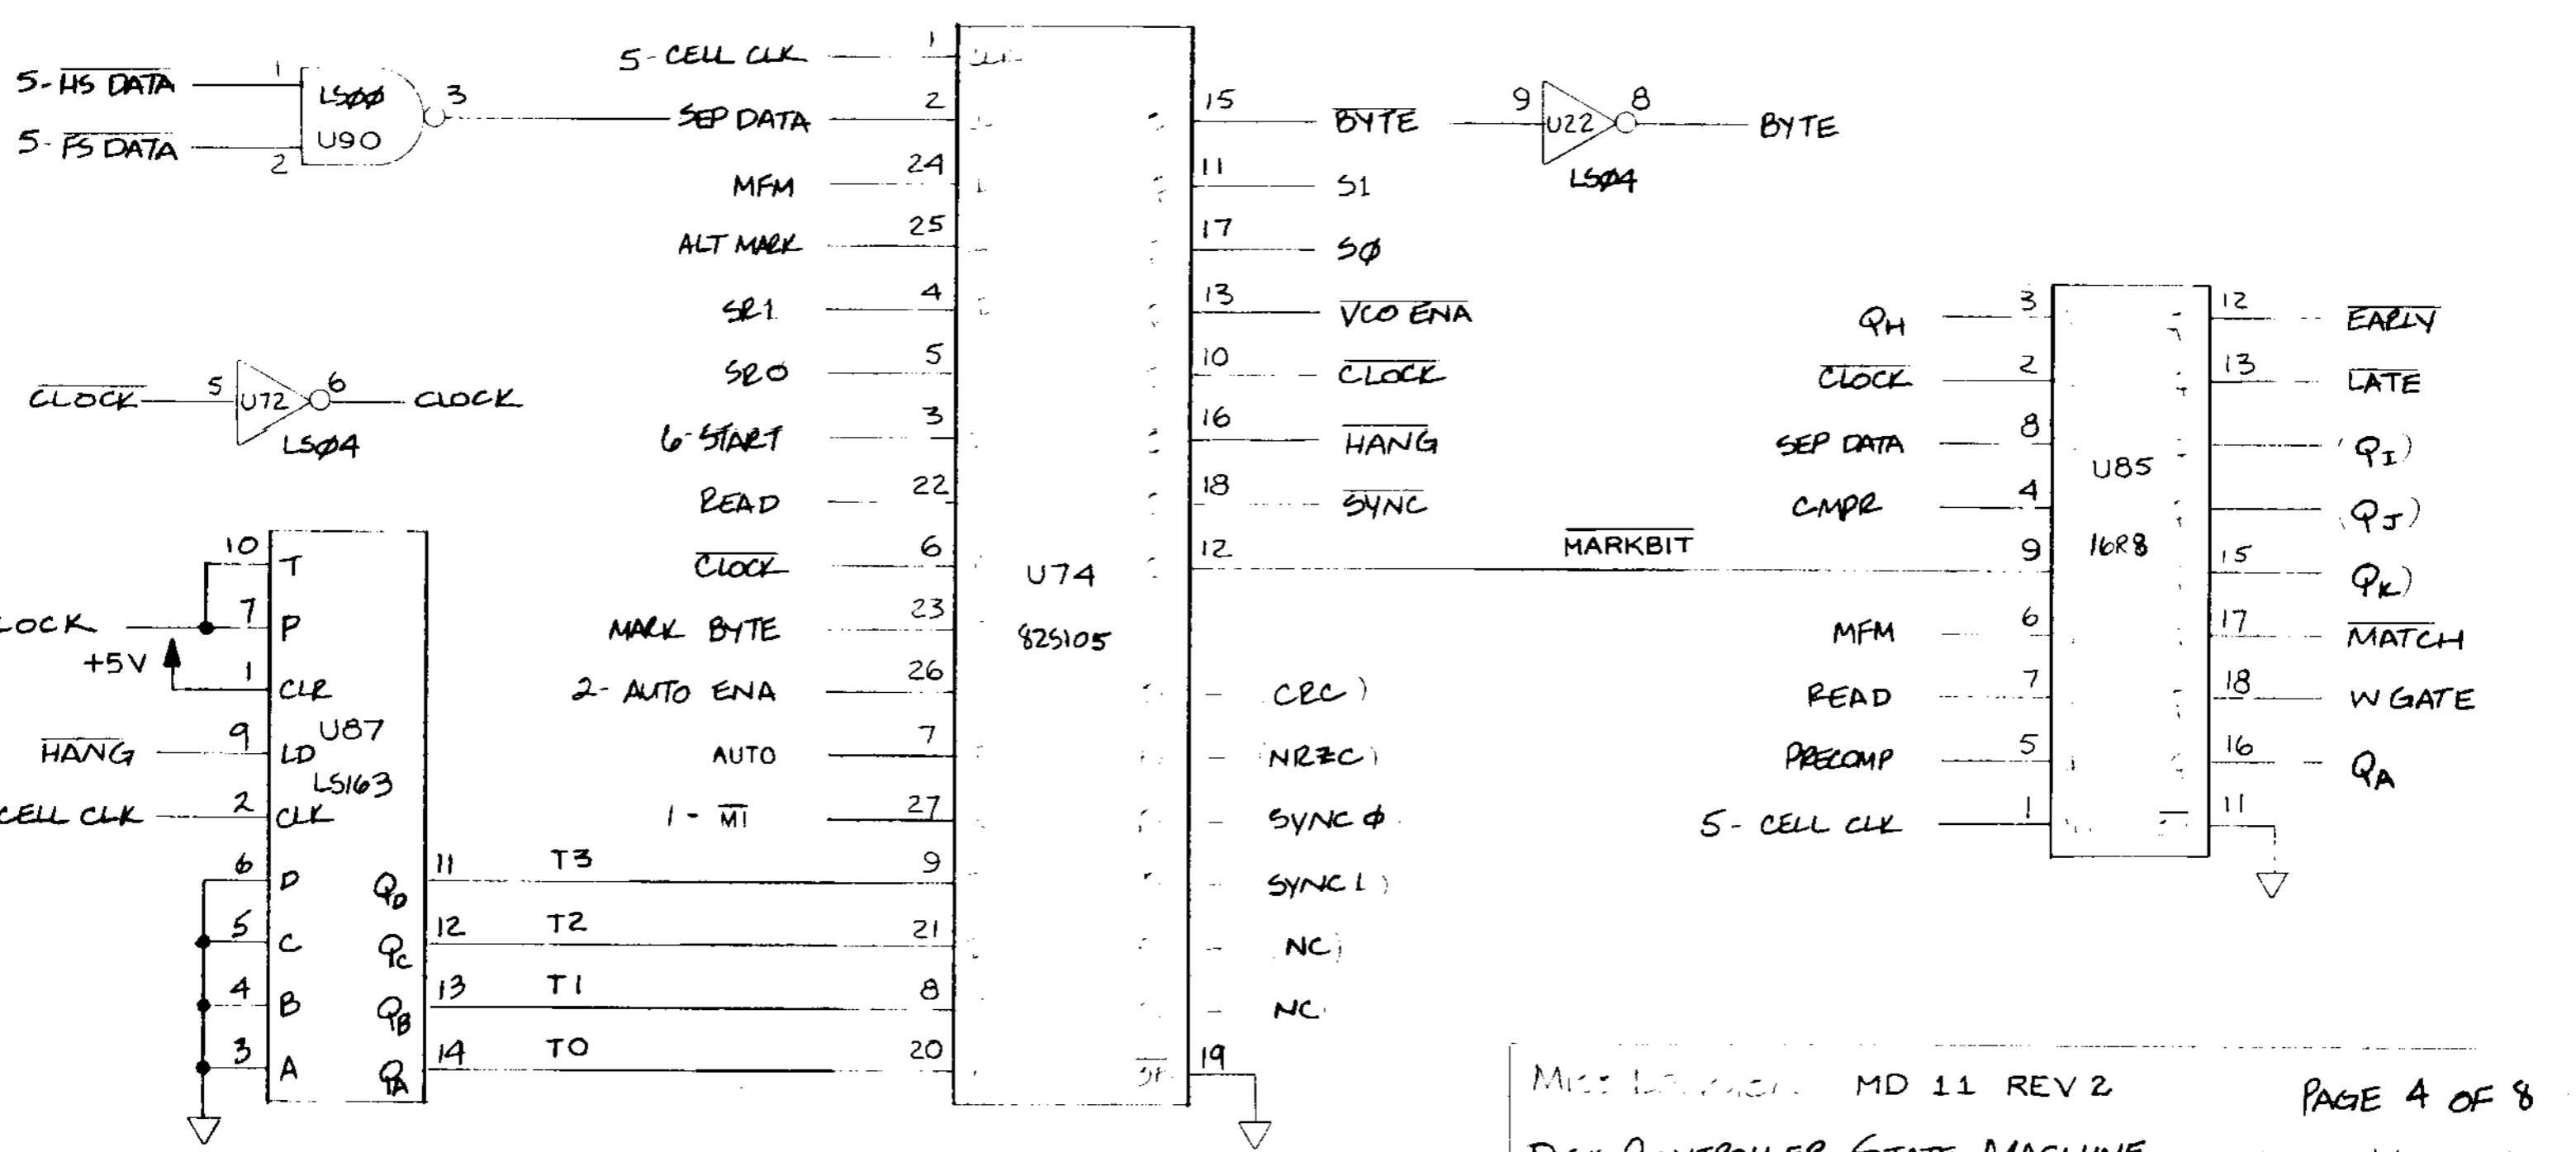 5-H̅S̅ D̅A̅T̅A̅ 1
LSØØ 3
5-F̅S̅ D̅A̅T̅A̅ 2
U90
C̅L̅O̅C̅K̅ 5 U72 6 CLOCK
LSØ4
10 T
LOCK 7 P
+5V
1 CLR
U87
H̅A̅N̅G̅ 9 LD
LS163
CELL CLK 2 CLK
6 D QD 11 T3
5 C QC 12 T2
4 B QB 13 T1
3 A QA 14 T0
5-CELL CLK 1
SEP DATA 2
MFM 24
ALT MARK 25
SR1 4
SR0 5
6-START 3
READ 22
C̅L̅O̅C̅K̅ 6
MARK BYTE 23
2-AUTO ENA 26
AUTO 7
1-M̅1̅ 27
9
21
8
20
U74
82S105
15 B̅Y̅T̅E̅ 9 U22 8 BYTE
LSØ4
11 S1
17 SØ
13 V̅C̅O̅ E̅N̅A̅
10 C̅L̅O̅C̅K̅
16 H̅A̅N̅G̅
18 S̅Y̅N̅C̅
12 M̅A̅R̅K̅B̅I̅T̅
CRC)
(NRZC)
SYNC Ø
SYNC 1)
NC)
NC
19
QH 3
C̅L̅O̅C̅K̅ 2
SEP DATA 8
CMPR 4
9
MFM 6
READ 7
PRECOMP 5
5-CELL CLK 1
U85
16R8
12 E̅A̅R̅L̅Y̅
13 L̅A̅T̅E̅
(QI)
(QJ)
15 QK)
17 M̅A̅T̅C̅H̅
18 W GATE
16 QA
11
MD 11 REV 2 PAGE 4 OF 8
CONTROLLER STATE MACHINE